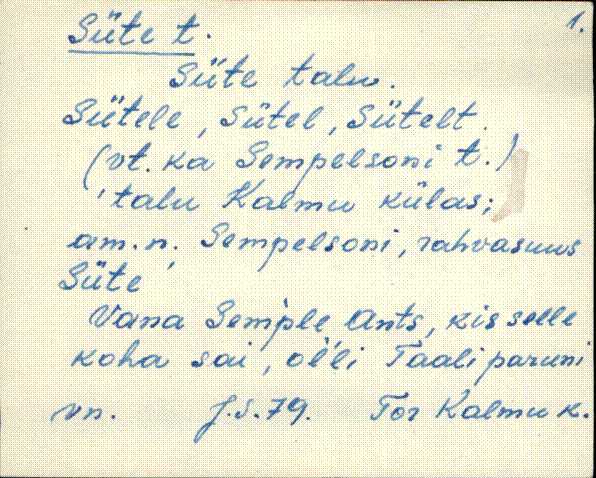 1.
Süte t.
Süte talu.
Sütele, Sütel, Sütelt.
(vt. ka Sempelsoni t.)
'talu Kalmu külas;
am. n. Sempelsoni, rahvasuus
Süte'
Vana Semp̀le Ants, kis selle
koha sai, oĺli Taali paruni
vn. J.S.79. Tor Kalmu k.